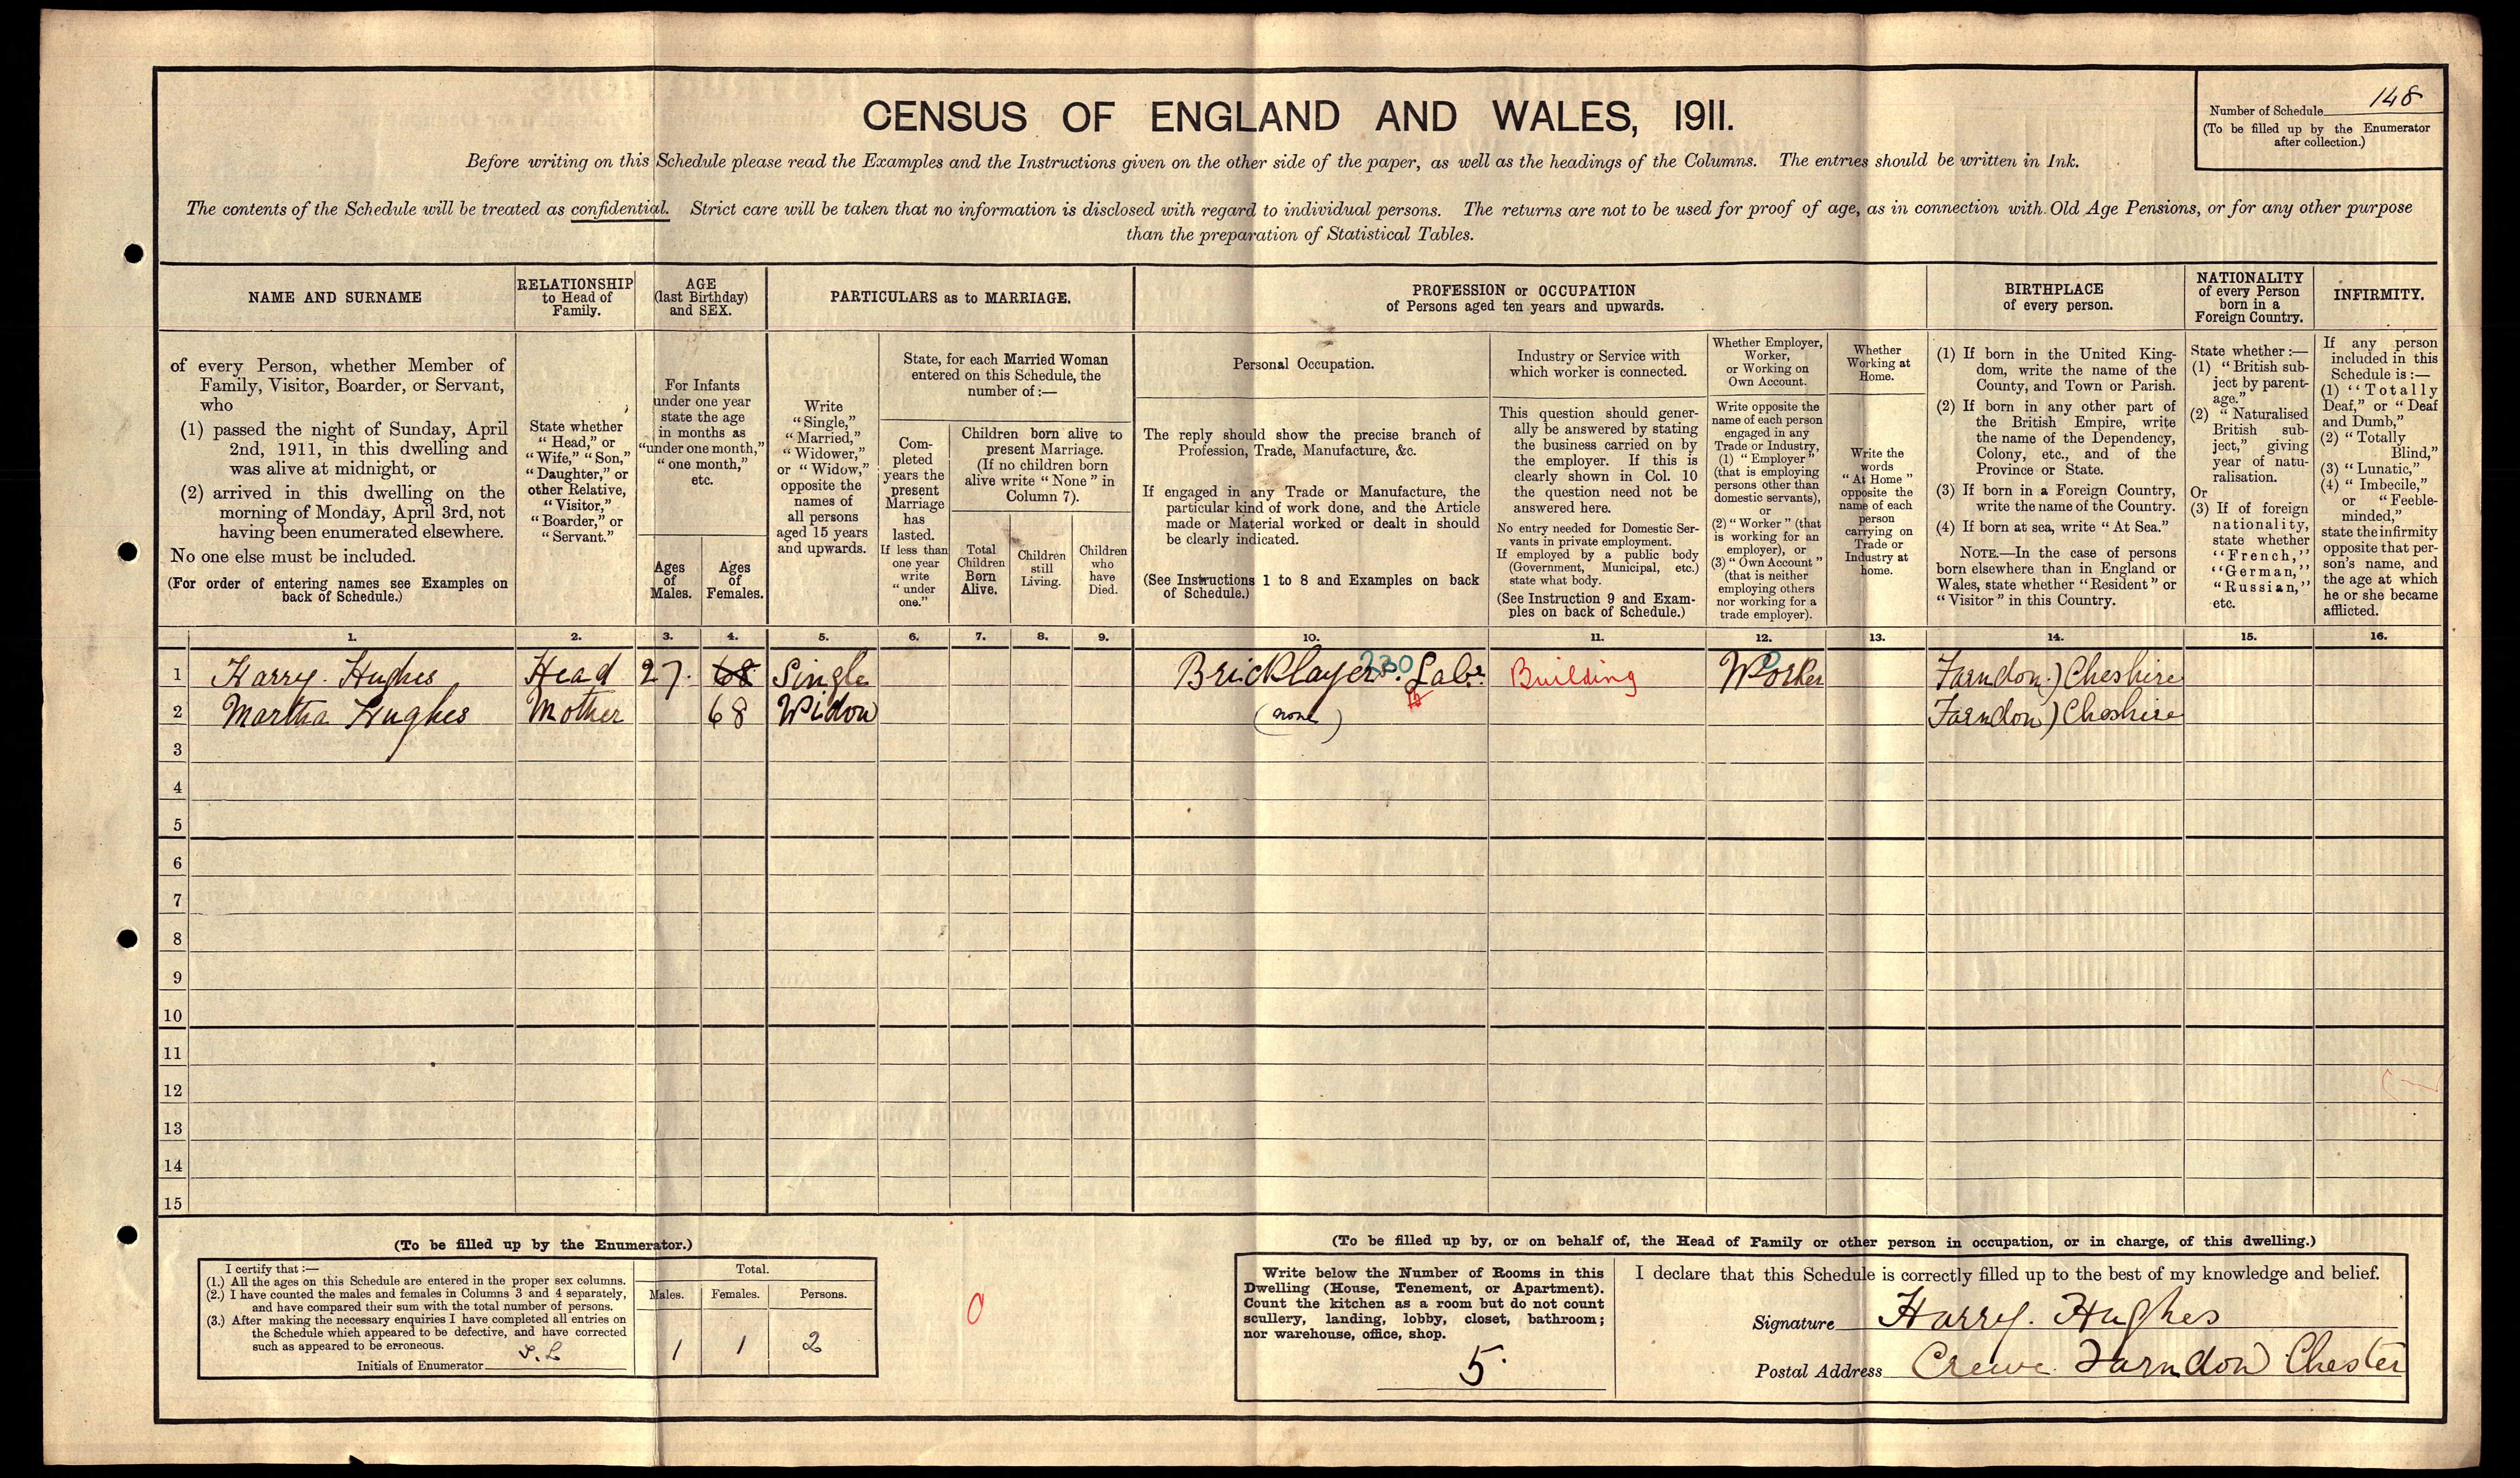 CENSUS OF ENGLAND AND WALES, 1911.
Number of Schedule 148
(To be filled up by the Enumerator
after collection.)
Before writing on this Schedule please read the Examples and the Instructions given on the other side of the paper, as well as the headings of the Columns. The entries should be written in Ink.
The contents of the Schedule will be treated as confidential. Strict care will be taken that no information is disclosed with regard to individual persons. The returns are not to be used for proof of age, as in connection with Old Age Pensions, or for any other purpose
than the preparation of Statistical Tables.
NAME AND SURNAME
of every Person, whether Member of
Family, Visitor, Boarder, or Servant,
who
(1) passed the night of Sunday, April
2nd, 1911, in this dwelling and
was alive at midnight, or
(2) arrived in this dwelling on the
morning of Monday, April 3rd, not
having been enumerated elsewhere.
No one else must be included.
(For order of entering names see Examples on
back of Schedule.)
RELATIONSHIP
to Head of
Family.
State whether
"Head," or
"Wife," "Son,"
"Daughter," or
other Relative,
"Visitor,"
"Boarder," or
"Servant."
AGE
(last Birthday)
and SEX.
For Infants
under one year
state the age
in months as
"under one month,"
"one month,"
etc.
Ages
of
Males.
Ages
of
Females.
PARTICULARS as to MARRIAGE.
Write
"Single,"
"Married,"
"Widower,"
or "Widow,"
opposite the
names of
all persons
aged 15 years
and upwards.
State, for each Married Woman
entered on this Schedule, the
number of :—
Com-
pleted
years the
present
Marriage
has
lasted.
If less than
one year
write
"under
one."
Children born alive to
present Marriage.
(If no children born
alive write "None" in
Column 7).
Total
Children
Born
Alive.
Children
still
Living.
Children
who
have
Died.
PROFESSION or OCCUPATION
of Persons aged ten years and upwards.
Personal Occupation.
The reply should show the precise branch of
Profession, Trade, Manufacture, &c.
If engaged in any Trade or Manufacture, the
particular kind of work done, and the Article
made or Material worked or dealt in should
be clearly indicated.
(See Instructions 1 to 8 and Examples on back
of Schedule.)
Industry or Service with
which worker is connected.
This question should gener-
ally be answered by stating
the business carried on by
the employer. If this is
clearly shown in Col. 10
the question need not be
answered here.
No entry needed for Domestic Ser-
vants in private employment.
If employed by a public body
(Government, Municipal, etc.)
state what body.
(See Instruction 9 and Exam-
ples on back of Schedule.)
Whether Employer,
Worker,
or Working on
Own Account.
Write opposite the
name of each person
engaged in any
Trade or Industry,
(1) "Employer"
(that is employing
persons other than
domestic servants),
or
(2) "Worker" (that
is working for an
employer), or
(3) "Own Account"
(that is neither
employing others
nor working for a
trade employer).
Whether
Working at
Home.
Write the
words
"At Home"
opposite the
name of each
person
carrying on
Trade or
Industry at
home.
BIRTHPLACE
of every person.
(1) If born in the United King-
dom, write the name of the
County, and Town or Parish.
(2) If born in any other part of
the British Empire, write
the name of the Dependency,
Colony, etc., and of the
Province or State.
(3) If born in a Foreign Country,
write the name of the Country.
(4) If born at sea, write "At Sea."
NOTE.—In the case of persons
born elsewhere than in England or
Wales, state whether "Resident" or
"Visitor" in this Country.
NATIONALITY
of every Person
born in a
Foreign Country.
State whether :—
(1) "British sub-
ject by parent-
age."
(2) "Naturalised
British sub-
ject," giving
year of natu-
ralisation.
Or
(3) If of foreign
nationality,
state whether
"French,"
"German,"
"Russian,"
etc.
INFIRMITY.
If any person
included in this
Schedule is :—
(1) "Totally
Deaf," or "Deaf
and Dumb,"
(2) "Totally
Blind,"
(3) "Lunatic,"
(4) "Imbecile,"
or "Feeble-
minded,"
state the infirmity
opposite that per-
son's name, and
the age at which
he or she became
afflicted.
1. 2. 3. 4. 5. 6. 7. 8. 9. 10. 11. 12. 13. 14. 15. 16.
1 Harry. Hughes Head 27. 68 Single Bricklayer 230 Labr. Building Worker Farndon) Cheshire
2 Martha Hughes Mother 68 Widow (none) Farndon) Cheshire
3
4
5
6
7
8
9
10
11
12
13
14
15
(To be filled up by the Enumerator.)
I certify that :—
(1.) All the ages on this Schedule are entered in the proper sex columns.
(2.) I have counted the males and females in Columns 3 and 4 separately,
and have compared their sum with the total number of persons.
(3.) After making the necessary enquiries I have completed all entries on
the Schedule which appeared to be defective, and have corrected
such as appeared to be erroneous.
Initials of Enumerator
Total.
Males. Females. Persons.
1 1 2
0
(To be filled up by, or on behalf of, the Head of Family or other person in occupation, or in charge, of this dwelling.)
Write below the Number of Rooms in this
Dwelling (House, Tenement, or Apartment).
Count the kitchen as a room but do not count
scullery, landing, lobby, closet, bathroom;
nor warehouse, office, shop.
5.
I declare that this Schedule is correctly filled up to the best of my knowledge and belief.
Signature Harry. Hughes
Postal Address Crewe Farndon Chester